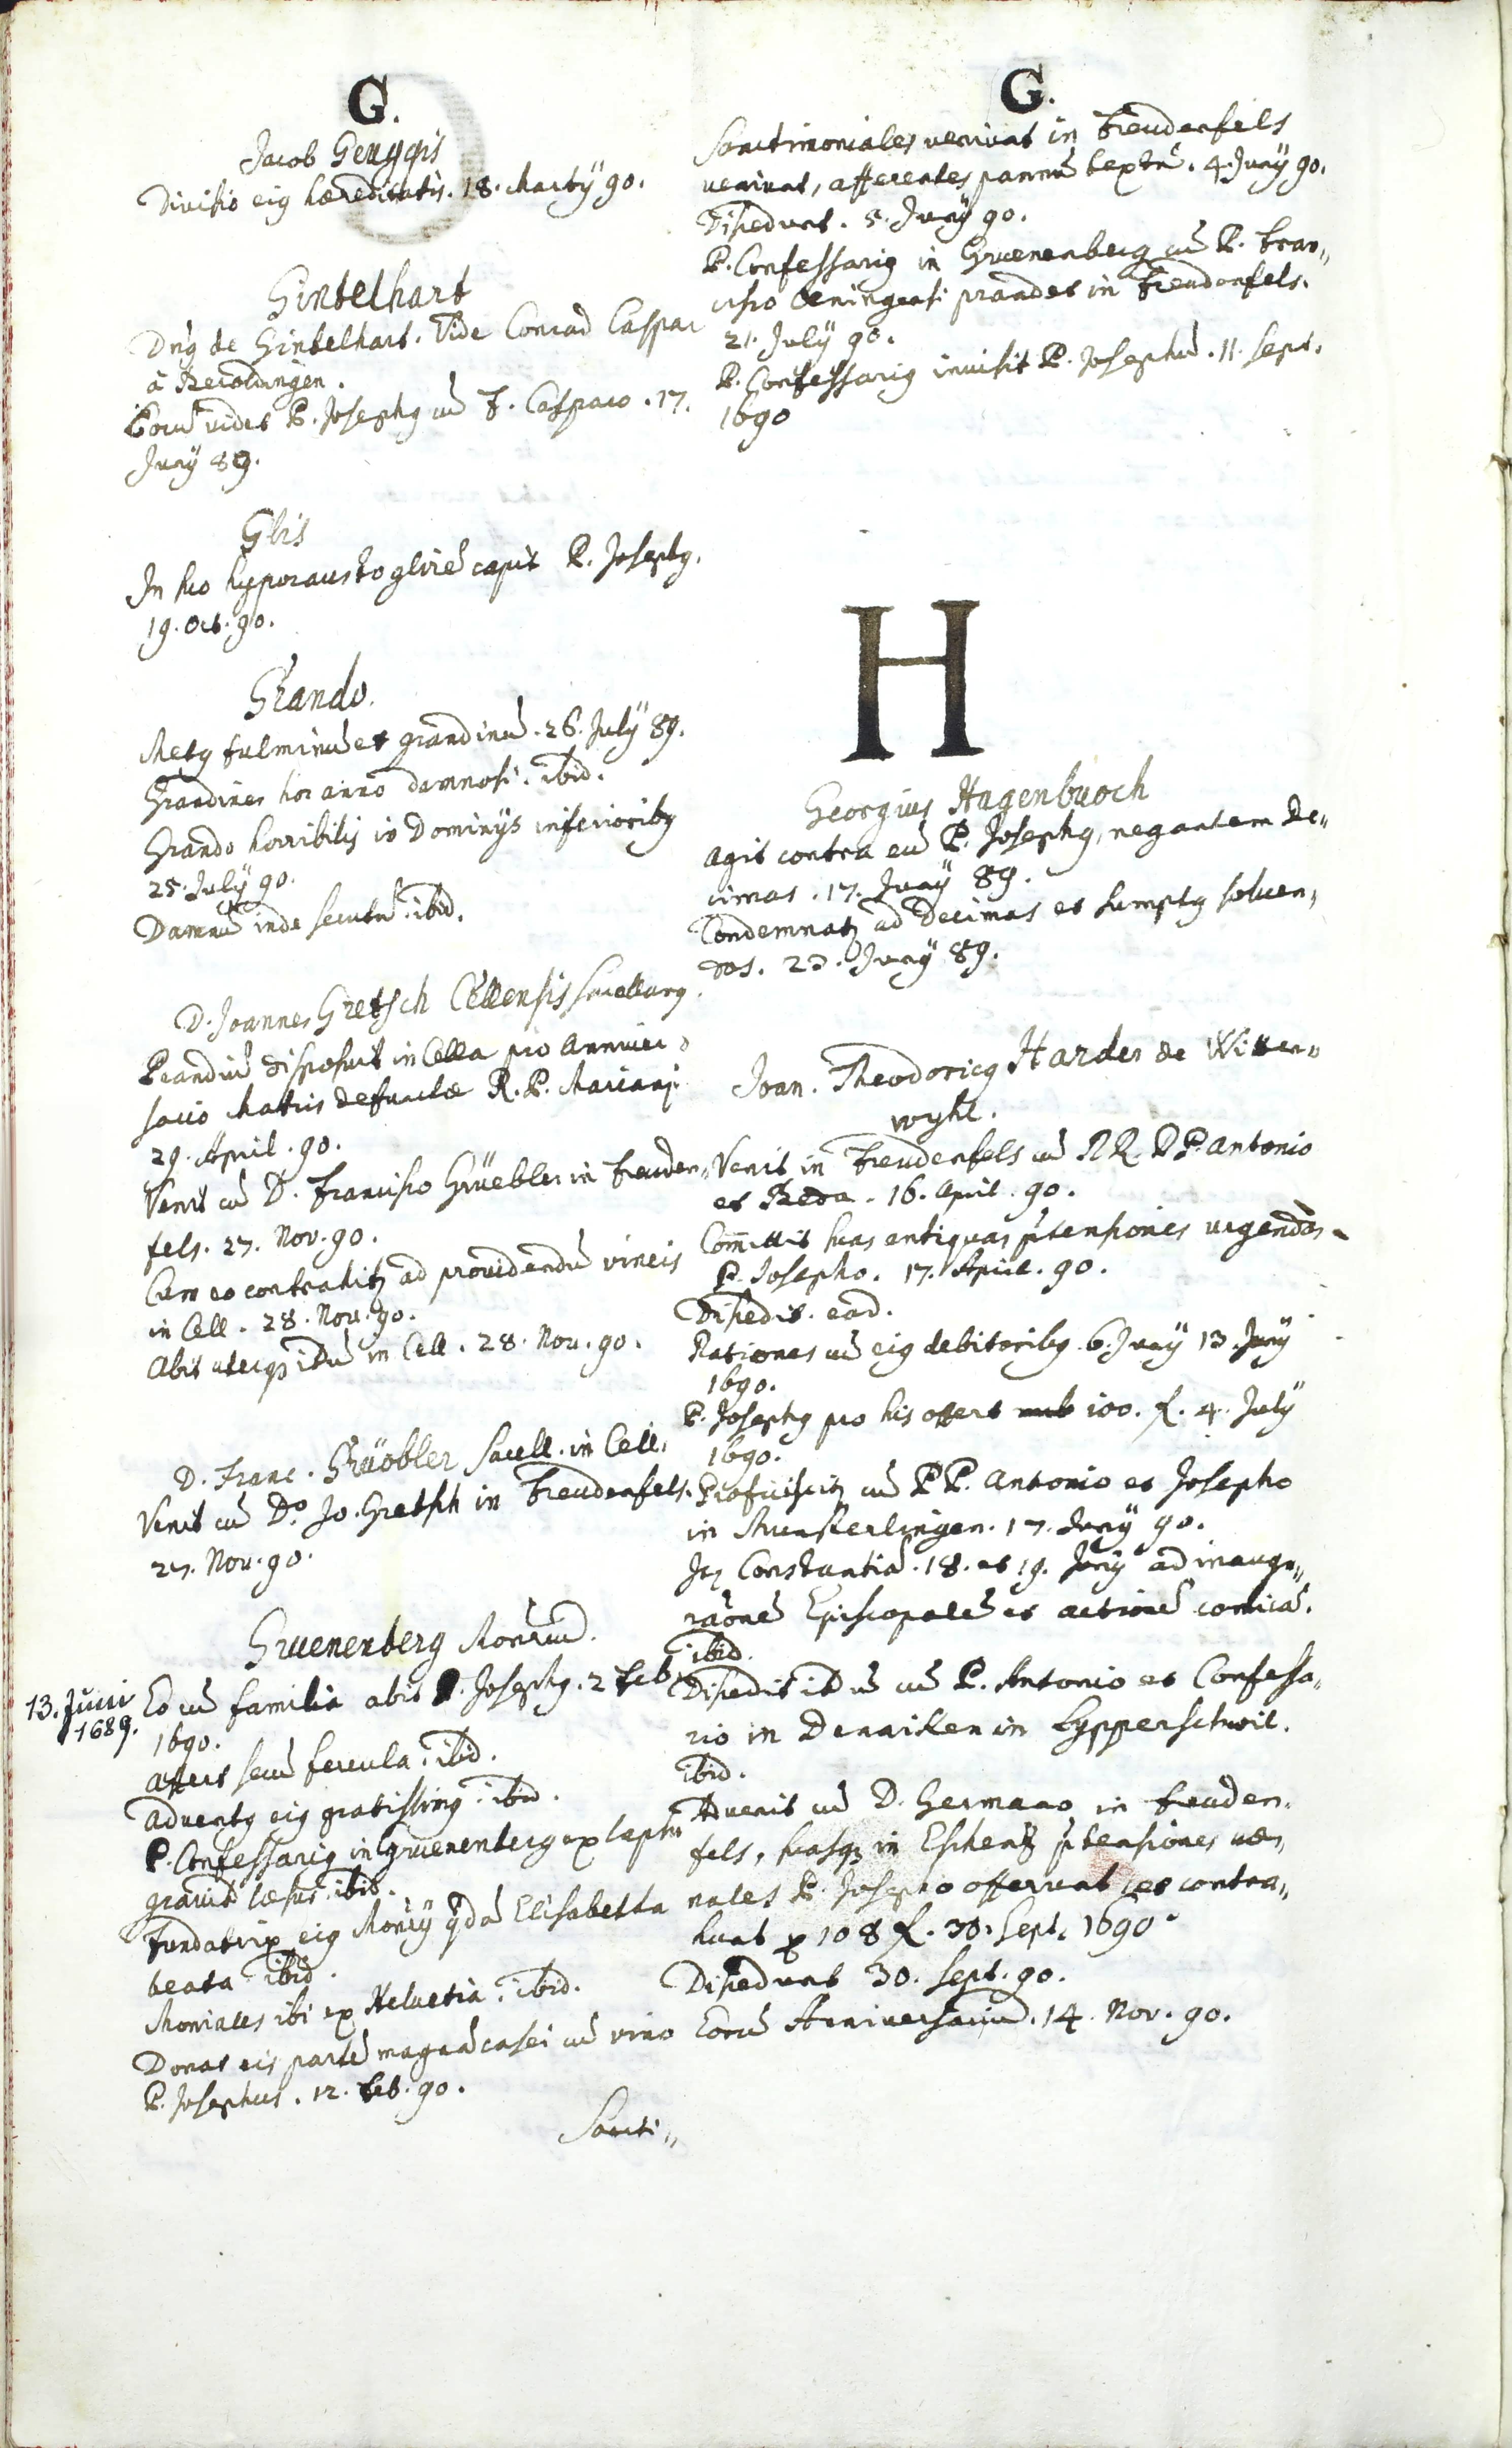 G.
Jacob Genggis
Divisio eig hæreditatis. 18. Martÿ 90.
Gintelhart
Dn̄g de Gintelhart. Vide Conrad Caspar
à Beroldingen.
Locū videt P. Josephg cū F. Casparo. 17.
Junÿ 89.
Glis
In suo hypocausto glirē capit P. Josephg.
19. Oct. 90.
Grando.
Metg fulminū et grandinū. 26. Julÿ 89.
Grandines hoc anno damnosi. ibid.
Grando horribilis in Dominÿs inferioribg
25. Julÿ 90.
Damnū inde secutū. ibid.
D. Joannes Gretsch Cellensis Sacellang.
Prandiū disposuit in Cella pro Anniver„
sario Matris defunctæ R. P. Mariani
29. April. 90.
Venit cū D. Francisco Grüebler in Freuden„
fels. 27. Nov. 90.
Cum eo contrahitz ad providendū vineis
in Cell. 28. Nov. 90.
Abit uterqz itdū in Cell. 28. Nov. 90.
D. Franc. Grüöbler Sacell. in Cell.
Venit cū Do. Jo. Gretsch in Freudenfels.
27. Nov. 90.
Gruenenberg Mon̄riū.
13. Juni
1689.
Eo cū familia abit P. Josephg. 2 Feb.
1690.
Affert secū fercula. ibid.
Adventg eig gratissimg. ibid.
P. Confessarig in Gruenenberg ex lapsu
gravit læsus. ibid.
Fundatrix eig Mon̄rÿ qdā Elisabetha
beata. ibid.
Moniales ibi ex Helvetiā. ibid.
Donat eis partē magnā casei cū vino
P. Josephus. 12. Feb. 90.
Sancti„
G.
Sanctimoniales veniunt in Freudenfels
veniunt, afferentes pannū textū. 4. Junÿ 90.
Discedunt. 5. Junÿ 90.
P. Confessarig in Gruenenberg cū P. Fran„
cisco Oeningensi prandet in Freudenfels.
21. Julÿ 90.
P. Confessarig invisit P. Josephū. 11. Sept.
1690
H
Georgius Hagenbuoch
Agit contra eū P. Josephg, negantem de„
cimas. 17. Junÿ 89.
Condemnatz ad Decimas et sumptg solven„
dos. 23. Junÿ 89.
Joan. Theodoricg Harder de Witten„
wyhl.
Venit in Freudenfels cū RR. PP. Antonio
et Beda. 16. April. 90.
Com̄ittit suas antiquas p̄tensiones urgendas
P. Josepho. 17. April. 90.
Discedit. ead.
Rationes cū eig debitoribg. 6. Junÿ 13. Junÿ
1690.
P. Josephg pro his offert 100. f. 4. Julÿ
1690.
Proficiscitz cū PP. Antonio et Josepho
in Munsterlingen. 17. Junÿ 90.
Itz Constantiā. 18. et 19. Junÿ ad inaugu„
raōnē Episcopalē et actionē comicā.
ibid.
Discedit itdū cū P. Antonio et Confessa„
rio in Denniken in Lypperschwil.
ibid.
Advenit cū D. Germano in Freuden„
fels, suasqz in Eschentz p̄tensiones væ„
nales P. Josepho offerunt, et contra„
hunt p 108 f. 30. Sept. 1690.
Discedunt 30. Sept. 90.
Eorū Anniversariū. 14. Nov. 90.